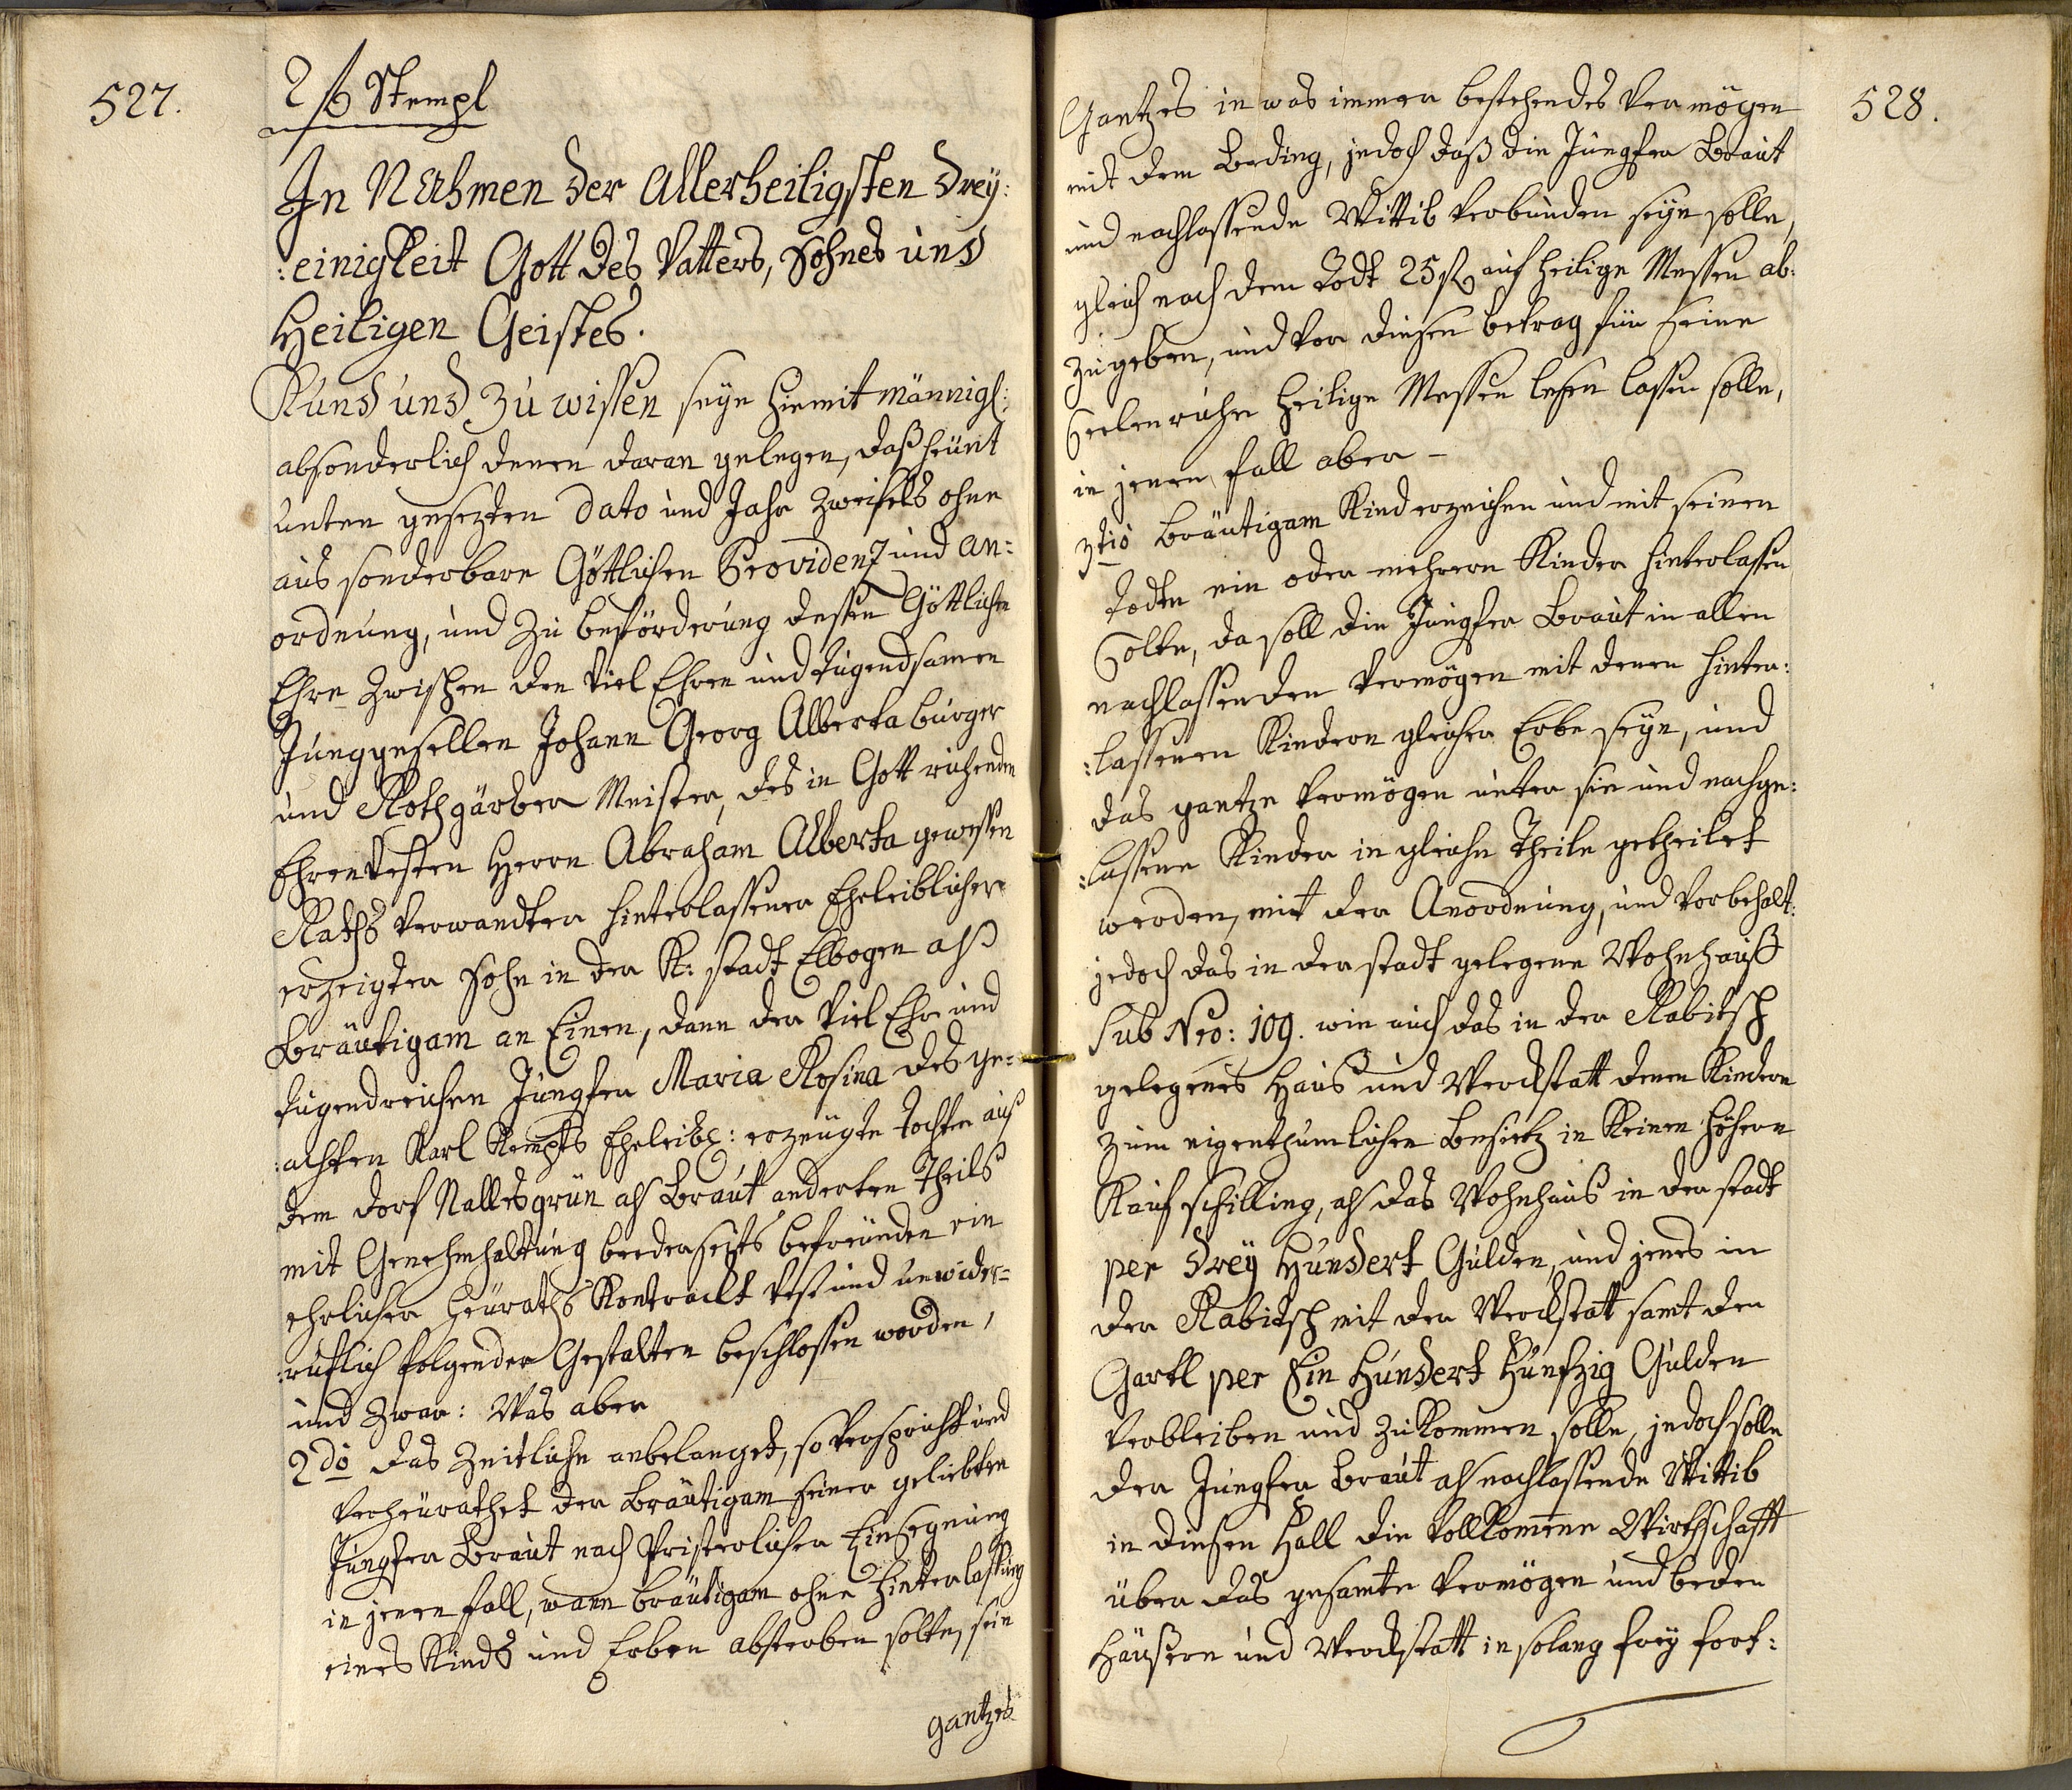 527.
2 ß Stempl
In Nahmen der Allerheiligsten Drey:
:einigkeit Gott des Vatters, Sohnes und
Heiligen Geistes.
Kund und zu wissen seye hiemit männigl:
absonderlich denen daran gelegen, daß heünt
unten gesezten Dato und Jahr zweifels ohne
aus sonderbare Göttlichen Providenz und An=
ordnung, und zu beförderung dessen Göttlichen
Ehre zwischen den Viel Ehren und Tugendsamen
Junggesellen Johann Georg Alberta burger
und Rothgärber Meister, des in Gott ruhenden
Ehrenvesten Herrn Abraham Alberta gewessen
Raths Verwandten hinterlassener Eheleiblicher
erzeigter Sohn in der K: stadt Elbogen als
Bräutigam an Einen, dann der Viel Ehr und
tugendreichen Jungfer Maria Rosina des ge=
:achten Karl Kempfs Eheleibl: erzeügte tochter aus
dem dorf Nallesgrün als Braut anderten Theils
mit Genehmhaltung beederseits befreünden ein
ehrlicher Heüraths Kontrackt vest und unwider=
:ruflich folgender Gestalten beschlossen worden,
und zwar: Was aber
2do das Zeitliche anbelanget, so verspricht und
verheürathet der Bräutigam seiner geliebten
Jungfer Braut nach Pristerlicher Einsegnung
in jenen fall, wann Bräutigam ohne Hinterlassung
eines Kinds und Erben absterben solte, sein
gantzes
528.
Gantzes in was immer bestehendes Vermögen
mit dem Beding, jedoch daß die Jungfer Braut
und nachlassende Wittib verbunden seyn solle,
gleich nach dem Todt 25 fl auf heilige Messen ab:
zugeben, und vor diesen betrag für seine
Seelenruhe heilige Messen lesen lassen solle,
in jenen fall aber –
3tio Bräutigam Kind erzeichen und mit seinen
todte ein oder mehrere Kinder hinterlassen
Solte, da soll die Jungfer Braut in allen
nachlassenden Vermögen mit denen hinter:
:lassenen Kindern gleicher Erbe seyn, und
das gantze Vermögen unter sie und nachge:
:lassene Kinder in gleiche Theile getheilet
werden, mit der Anordnung, und Vorbehalt:
jedoch das in der stadt gelegene Wohnhauß
Sub Nro: 109. wie auch das in der Rabitsch
gelegenes Haus und Werckstatt denen Kindern
zum eigenthumlichen Besietz in keinen höhern
Kaufschilling, als das Wohnhaus in der stadt
per Drey Hundert Gulden, und jenes in
der Rabitsch mit der Werckstatt samt den
Gartl per Ein Hundert Funfzig Gulden
verbleiben und zukommen solle, jedoch solle
der Jungfer Braut als nachlassende Wittib
in diesen Fall die Vollkommene Wirthschafft
über das gesamte Vermögen und beden
Häusern und Werckstatt in solang frey fort: